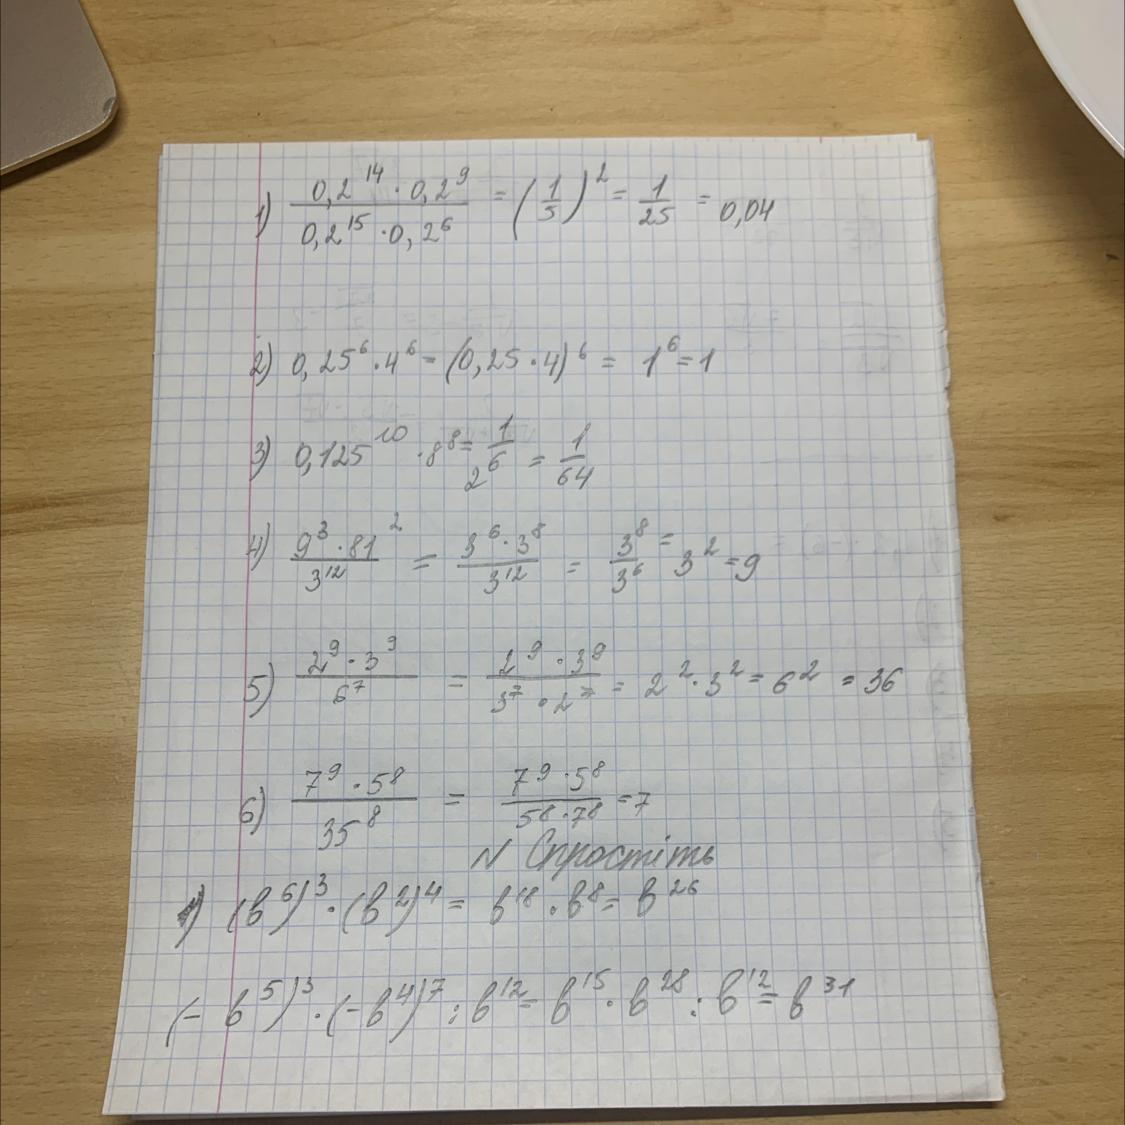 1) (0,2^14 · 0,2^9)/(0,2^15 · 0,2^6) = (1/5)^2 = 1/25 = 0,04
2) 0,25^6 · 4^6 = (0,25 · 4)^6 = 1^6 = 1
3) 0,125^10 · 8^8 = 1/2^6 = 1/64
4) (9^3 · 81^2)/3^12 = (3^6 · 3^8)/3^12 = 3^8/3^6 = 3^2 = 9
5) (2^9 · 3^9)/6^7 = (2^9 · 3^9)/(3^7 · 2^7) = 2^2 · 3^2 = 6^2 = 36
6) (7^9 · 5^8)/35^8 = (7^9 · 5^8)/(5^8 · 7^8) = 7
N Спростіть
1) (b^6)^3 · (b^2)^4 = b^18 · b^8 = b^26
(-b^5)^3 · (-b^4)^7 : b^12 = b^15 · b^28 : b^12 = b^31